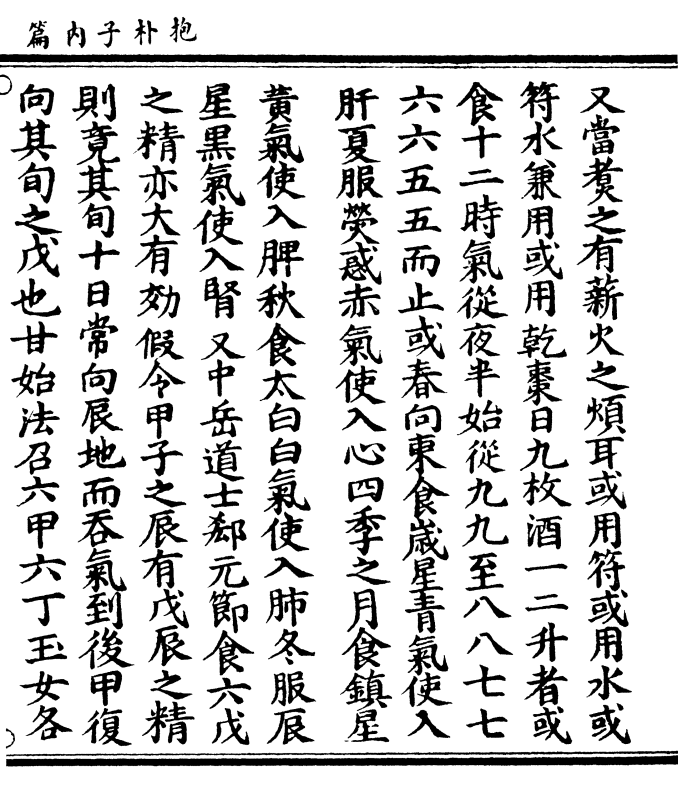 抱朴子內篇
又當煑之有薪火之煩耳或用符或用水或
符水兼用或用乾棗日九枚酒一二升者或
食十二時氣從夜半始從九九至八八七七
六六五五而止或春向東食歲星青氣使入
肝夏服熒惑赤氣使入心四季之月食鎮星
黃氣使入脾秋食太白白氣使入肺冬服辰
星黑氣使入腎又中岳道士郄元節食六戊
之精亦大有効假令甲子之辰有戊辰之精
則竟其旬十日常向辰地而吞氣到後甲復
向其旬之戊也甘始法召六甲六丁玉女各